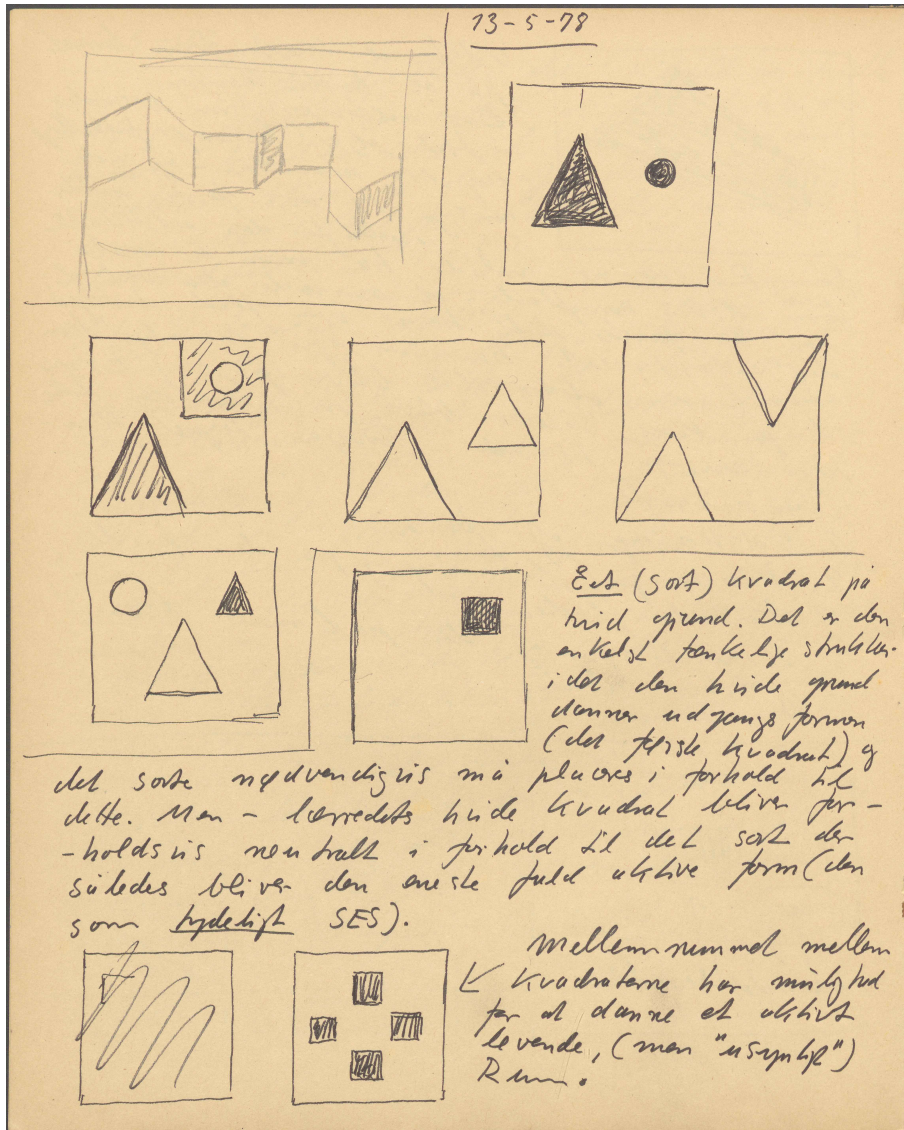 13-5-78
Eet (sort) kvadrat på
hvid grund. Det er den
enkelst tænkelige struktur
idet den hvide grund
danner udgangs formen
(det fysiske kvadrat) og
det sorte nødvendigvis må placeres i forhold til
dette. Men - lærredets hvide kvadrat bliver for-
-holdsvis neutralt i forhold til det sort der
således bliver den eneste fuld aktive form (den
som tydeligt SES).
Mellemrummet mellem
kvadraterne har mulighed
for at danne et aktivt
levende, (men "usynligt")
Rum.